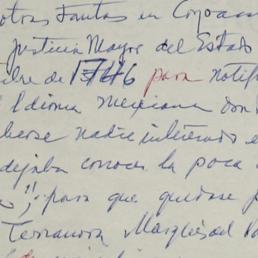 otras Juntas en Coyoacan
Justicia Mayor del Estado
de 1746 para notif
Idioma mexicano don
nadie interesado e
dejaba conocer la poca
para que quedase
Terranova Marqués del Va